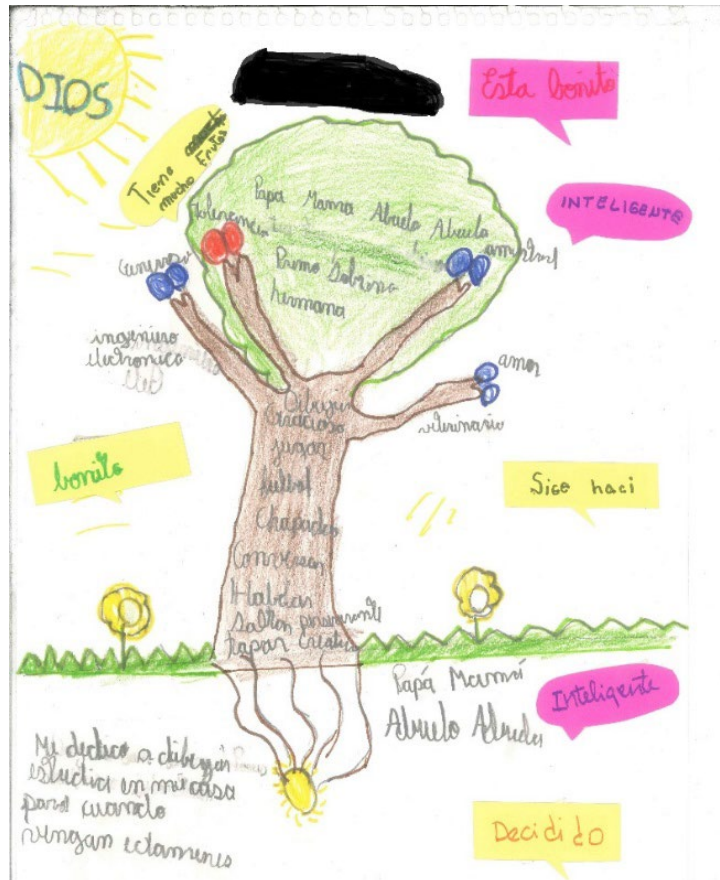 DIOS
Esta boñito
Tiene
mucho Frutos
INTELIGENTE
Papá Mama Abuelo Abuela
tolerancia
amistad
Primo Sobrino
hermana
ingeniero
electronico
amor
veterinario
Dibujar
Gracioso
jugar
futbol
bonito
Sise haci
Chapadas
Conversar
Hablar
Saltar perseverante
tapar Creativo
Papá Mamá
Abuelo Abuela
Inteligente
Me dedico a dibujar
estudiar en mi casa
para cuando
vengan ectamenes
Decidido